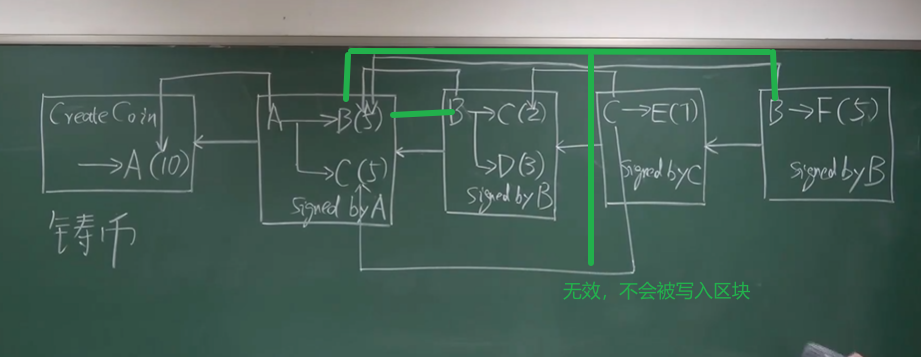 CreateCoin
→A(10)
铸币
A→B(5)
→C(5)
signed by A
B→C(2)
→D(3)
signed by B
C→E(7)
signed by C
B→F(5)
signed by B
无效，不会被写入区块